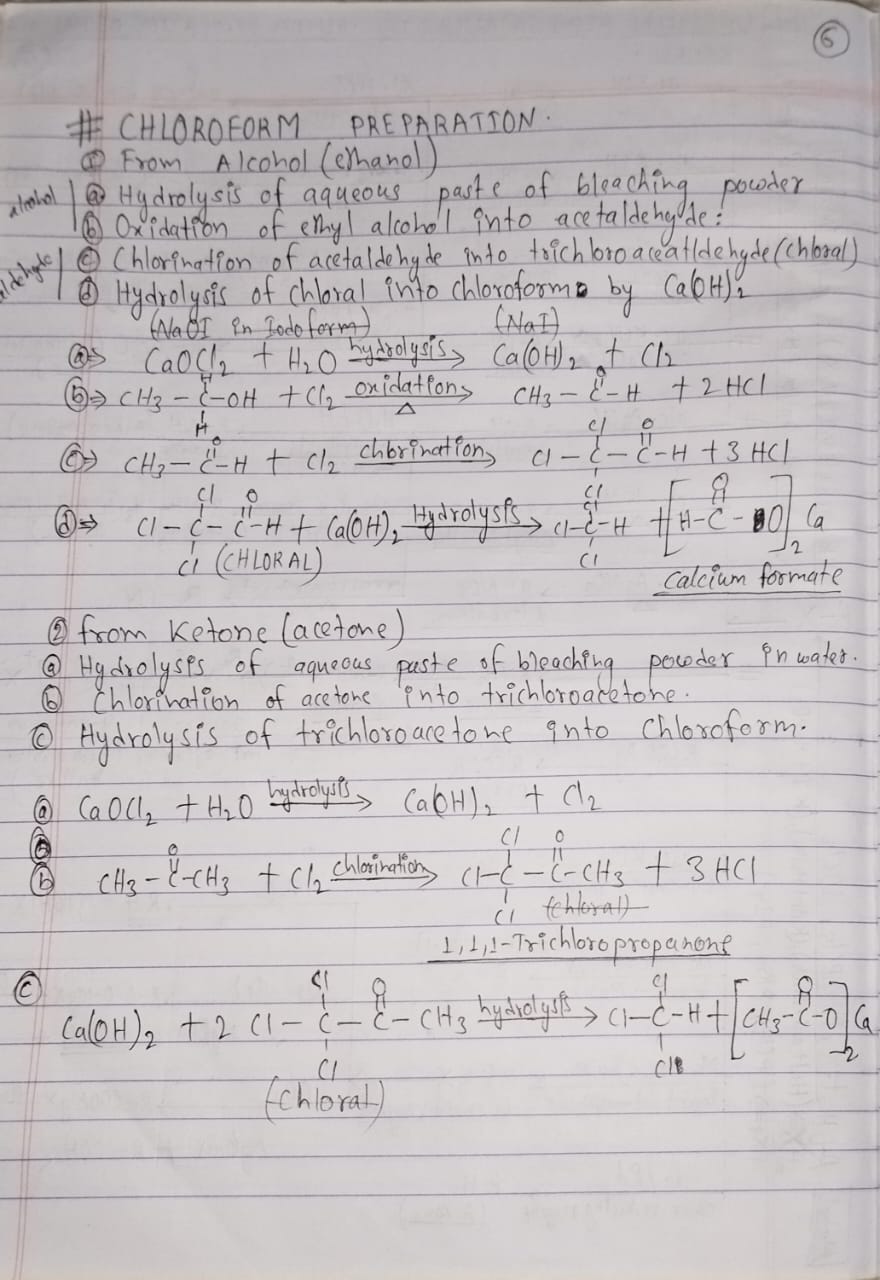 6
# CHLOROFORM PREPARATION.
① From Alcohol (ethanol)
alcohol
ⓐ Hydrolysis of aqueous paste of bleaching powder
ⓑ Oxidation of ethyl alcohol into acetaldehyde:
aldehyde
ⓒ Chlorination of acetaldehyde into trichloroaceatldehyde (chloral)
ⓓ Hydrolysis of chloral into chloroform by Ca(OH)2
(NaOI in Iodoform) (NaI)
ⓐ⇒ CaOCl2 + H2O hydrolysis→ Ca(OH)2 + Cl2
H O
ⓑ⇒ CH3 – C – OH + Cl2 oxidation→ CH3 – C – H + 2 HCl
H Δ
O Cl O
ⓒ⇒ CH3 – C – H + Cl2 chlorination→ Cl – C – C – H + 3 HCl
Cl O Cl Cl O
ⓓ⇒ Cl – C – C – H + Ca(OH)2 Hydrolysis→ Cl – C – H + [H – C – O]2 Ca
Cl (CHLORAL) Cl
Calcium formate
② from Ketone (acetone)
ⓐ Hydrolysis of aqueous paste of bleaching powder in water.
ⓑ Chlorination of acetone into trichloroacetone.
ⓒ Hydrolysis of trichloroacetone into Chloroform.
ⓐ CaOCl2 + H2O hydrolysis→ Ca(OH)2 + Cl2
O Cl O
ⓑ CH3 – C – CH3 + Cl2 chlorination→ Cl – C – C – CH3 + 3 HCl
Cl (chloral)
1,1,1-Trichloropropanone
ⓒ
Cl O Cl O
Ca(OH)2 + 2 Cl – C – C – CH3 hydrolysis→ Cl – C – H + [CH3 – C – O]2 Ca
Cl Cl
(Chloral)